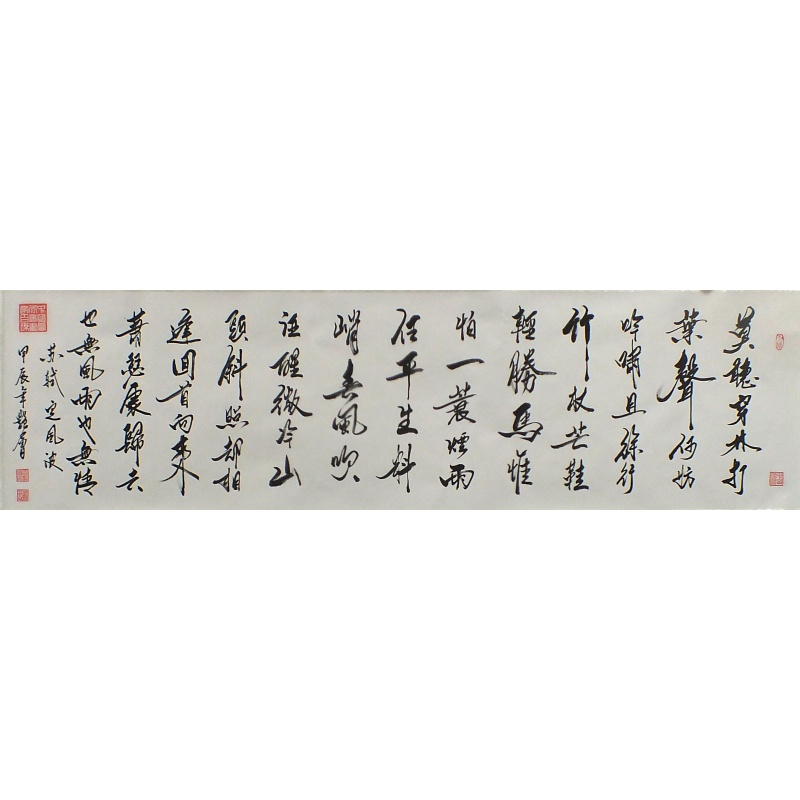 莫聽穿林打
葉聲何妨
吟嘯且徐行
竹杖芒鞋
輕勝馬誰
怕一蓑煙雨
任平生料
峭春風吹
酒醒微冷山
頭斜照却相
迎回首向來
蕭瑟處歸去
也無風雨也無晴
苏軾定風波
甲辰年